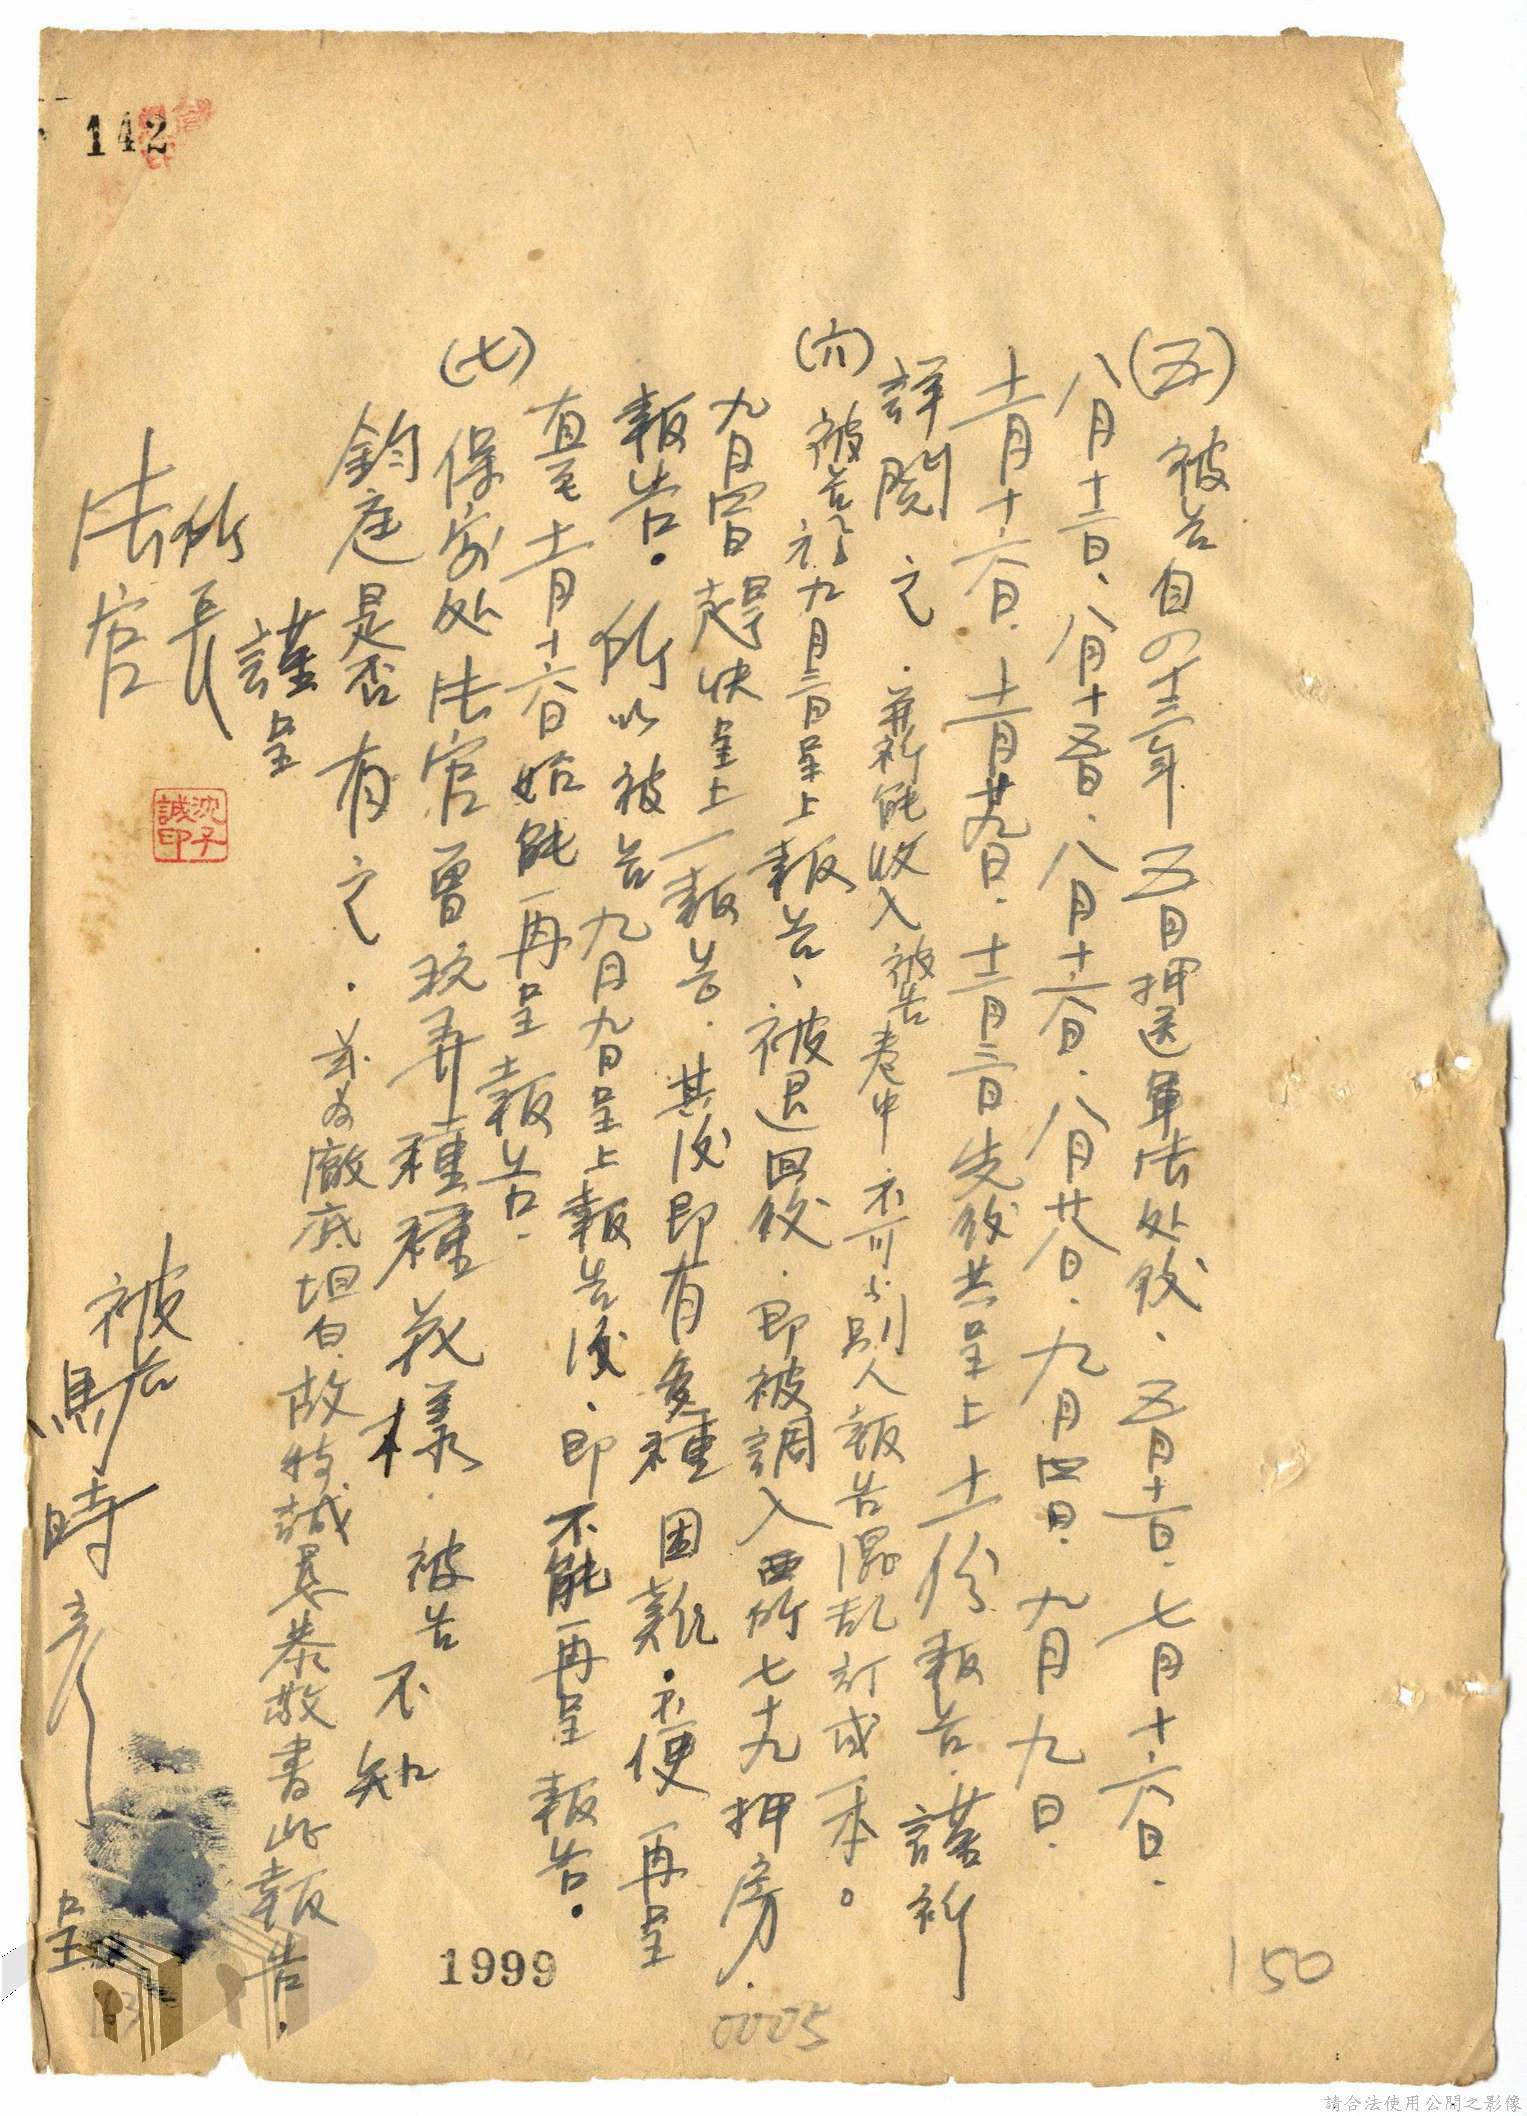 142
(五)被告自四十三年五月押送軍法处後、五月十三日、七月十六日、
八月十三日、八月十五日、八月十六日、八月廿八日、九月四日、九月九日、
十一月十六日、十一月廿九日、十二月三日先後共呈上十一份報告、謹祈
詳閱之、並祈能收入被告卷中不可与別人報告混乱訂成一本。
(六)被告於九月三日呈上報告、被退回後、即被調入西所七十九押房、
九月四日趕快呈上一報告、其後即有多種困難、不便再呈
報告、所以被告九月九日呈上報告後、即不能再呈報告。
直至十一月十六日始能再呈報告、
(七)保安处法官曾玩弄種種花樣、被告不知
鈞庭是否有之、茲為徹底坦白、故特誠懇恭敬書此報告、
謹呈
所長
法官
沈子誠印
被告
馬時彦 呈
1999
0005
150
請合法使用公開之影像